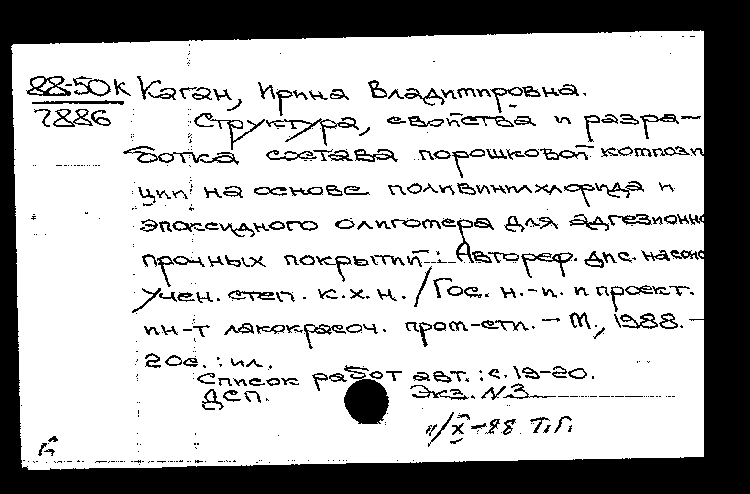 88-50к Каган, Ирина Владимировна.
7886 Структура, свойства и разра-
ботка состава порошковой компози
ции на основе поливинилхлорида и
эпоксидного олигомера для адгезионно
прочных покрытий : Автореф. дис. на соис
учен. степ. к.х.н. / Гос. н.-и. и проект.
ин-т лакокрасоч. пром-сти. - М., 1988. -
20с. : ил.
Список работ авт.: с. 19-20.
ДСП. Экз. N 3
/X-88 Т.Г.